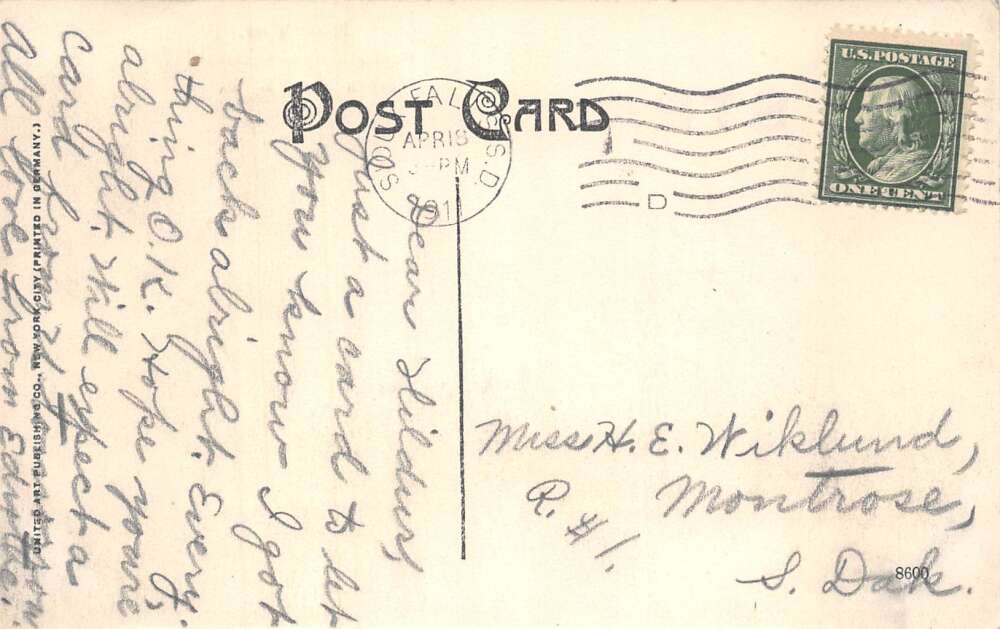 POST CARD
SIOUX FALLS S.D.
APR 18
PM
1911
D
U.S. POSTAGE
ONE CENT
Dear Hildur,
Just a card to let
you know I got
back alright. Every-
thing O.K. Hope youre
alright. Will expect a
card from you soon
all love from
Miss H. E. Wiklund,
Montrose,
R. #1.
S. Dak.
8600
UNITED ART PUBLISHING CO., NEW YORK CITY (PRINTED IN GERMANY.)